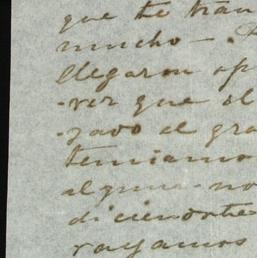 que te han
mucho —
llegaron
ver que el
zado el gra
teniamo
alguna no
diciendote
vayamos